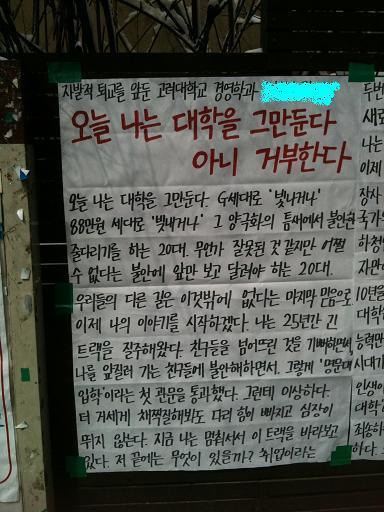 자발적 퇴교를 앞둔 고려대학교 경영학과
오늘 나는 대학을 그만둔다
아니 거부한다
오늘 나는 대학을 그만둔다. G세대로 '빛나거나'
88만원 세대로 '빚내거나' 그 양극화의 틈새에서 불안한
줄타리기를 하는 20대. 무언가 잘못된 것 같지만 어쩔
수 없다는 불안에 앞만 보고 달려야 하는 20대.
우리들의 다른 길은 이것밖에 없다는 마지막 믿음으로
이제 나의 이야기를 시작하겠다. 나는 25년간 긴
트랙을 질주해왔다. 친구들을 넘어뜨린 것을 기뻐하면서,
나를 앞질러 가는 친구들에 불안해하면서. 그렇게 '명문대
입학'이라는 첫 관문을 통과했다. 그런데 이상하다.
더 거세게 채찍질해봐도 다리 힘이 빠지고 심장이
뛰지 않는다. 지금 나는 멈춰서서 이 트랙을 바라보고
있다. 저 끝에는 무엇이 있을까? 취업이라는
두번
새로
나는
이제
장사
국가
하청
자만
10년을
대학
능력만
시대가
인생
대학
죄송하
하다